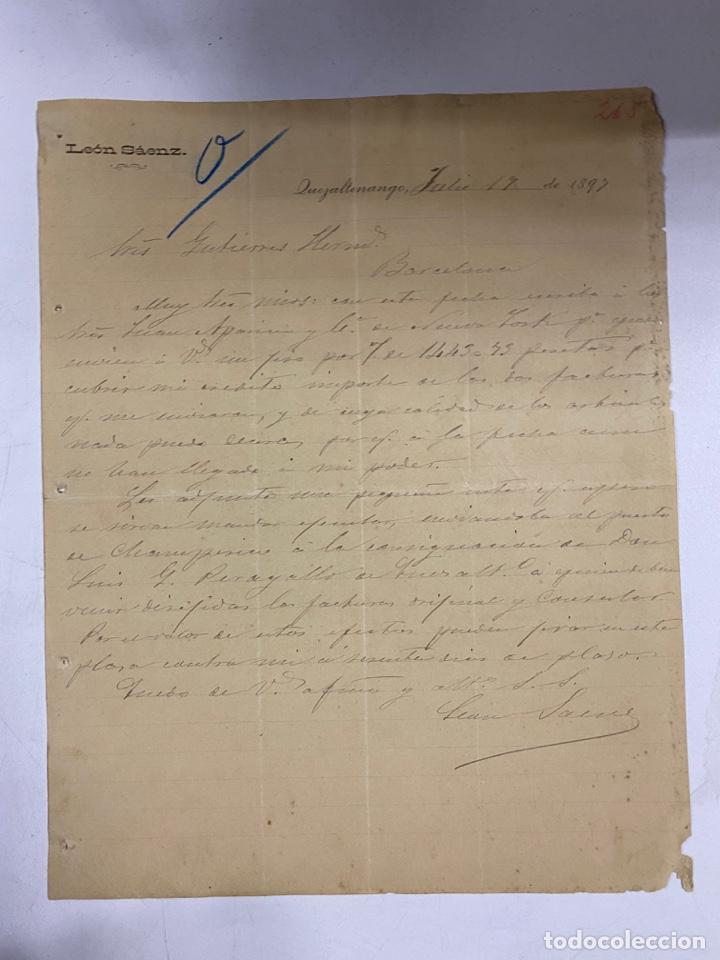 265
León Sáenz.
Quezaltenango, Julio 17 de 1897
Gutierres Herms
Barcelona
Muy mios: con esta fecha escribo á los
Juan Aparicio y Cª de Nueva York pª que
envien á Vs un giro por de 1443.43 pesetas pª
cubrir mi credito importe de las dos facturas
q. me enviaron, y de cuya calidad de los
nada puedo decirs, por q. á la fecha aun
no han llegado á mi poder.
Les adjunto una pequeña nota q.
se sirvan mandar ejecutar, enviandola al puerto
de Champerico á la consignación de Don
Luis G. Peragallo de á quien deben
venir dirijidas las facturas orijinal y Consular
Por el valor de estos efectos pueden jirar en esta
plaza contra mi á sesenta dias de plazo.
Quedo de Vs afmo y attº S. S.
León Saenz
todocoleccion
todocoleccion.net